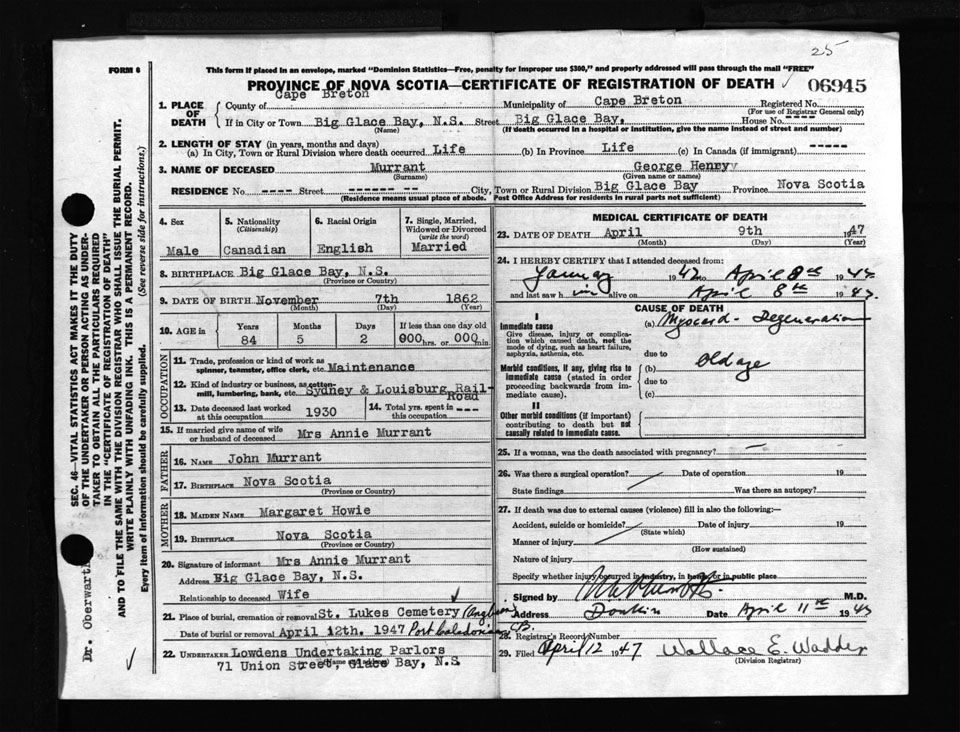 25
FORM 6
This form if placed in an envelope, marked "Dominion Statistics—Free, penalty for improper use $300," and properly addressed will pass through the mail "FREE"
PROVINCE OF NOVA SCOTIA—CERTIFICATE OF REGISTRATION OF DEATH
06945
1. PLACE OF DEATH
County of Cape Breton Municipality of Cape Breton Registered No.
(For use of Registrar General only)
If in City or Town Big Glace Bay, N.S. Street Big Glace Bay, House No. ----
(Name) (If death occurred in a hospital or institution, give the name instead of street and number)
2. LENGTH OF STAY (in years, months and days)
(a) In City, Town or Rural Division where death occurred Life (b) In Province Life (c) In Canada (if immigrant) -----
3. NAME OF DECEASED Murrant George Henry
(Surname) (Given name or names)
RESIDENCE No. ---- Street ------ -- City, Town or Rural Division Big Glace Bay Province Nova Scotia
(Residence means usual place of abode. Post Office Address for residents in rural parts not sufficient)
4. Sex
Male
5. Nationality
(Citizenship)
Canadian
6. Racial Origin
English
7. Single, Married, Widowed or Divorced
(write the word)
Married
8. BIRTHPLACE Big Glace Bay, N.S.
(Province or Country)
9. DATE OF BIRTH November 7th 1862
(Month) (Day) (Year)
10. AGE in
Years Months Days If less than one day old
84 5 2 000 hrs. or 000 min.
OCCUPATION
11. Trade, profession or kind of work as spinner, teamster, office clerk, etc. Maintenance
12. Kind of industry or business, as cotton-mill, lumbering, bank, etc. Sydney & Louisburg Rail-Road
13. Date deceased last worked at this occupation 1930
14. Total yrs. spent in this occupation ---
15. If married give name of wife or husband of deceased Mrs Annie Murrant
FATHER
16. NAME John Murrant
17. BIRTHPLACE Nova Scotia
(Province or Country)
MOTHER
18. MAIDEN NAME Margaret Howie
19. BIRTHPLACE Nova Scotia
(Province or Country)
20. Signature of informant Mrs Annie Murrant
Address Big Glace Bay, N.S.
Relationship to deceased Wife
21. Place of burial, cremation or removal St. Lukes Cemetery (Anglican)
Date of burial or removal April 12th. 1947 Port Caledonia CB.
22. UNDERTAKER Lowdens Undertaking Parlors
71 Union Street, Glace Bay, N.S.
(Name and address)
MEDICAL CERTIFICATE OF DEATH
23. DATE OF DEATH April 9th 1947
(Month) (Day) (Year)
24. I HEREBY CERTIFY that I attended deceased from:
January 1942 to April 8th 1947
and last saw him alive on April 8th 1947.
CAUSE OF DEATH
I
Immediate cause
Give disease, injury or complication which caused death, not the mode of dying, such as heart failure, asphyxia, asthenia, etc.
(a) Myocard- Degeneration
due to
Morbid conditions, if any, giving rise to immediate cause (stated in order proceeding backwards from immediate cause).
(b) Old age
due to
(c)
II
Other morbid conditions (if important) contributing to death but not causally related to immediate cause.
25. If a woman, was the death associated with pregnancy?
26. Was there a surgical operation? Date of operation 19
State findings Was there an autopsy?
27. If death was due to external causes (violence) fill in also the following—
Accident, suicide or homicide? Date of injury 19
(State which)
Manner of injury
(How sustained)
Nature of injury
Specify whether injury occurred in industry, in home or in public place
Signed by M.D.
Address Donkin Date April 11th 1947
28. Registrar's Record Number
29. Filed April 12 1947 Wallace E. Wadden
(Division Registrar)
SEC. 46—VITAL STATISTICS ACT MAKES IT THE DUTY OF THE UNDERTAKER OR PERSON ACTING AS UNDERTAKER TO OBTAIN ALL THE PARTICULARS REQUIRED IN THE "CERTIFICATE OF REGISTRATION OF DEATH" AND TO FILE THE SAME WITH THE DIVISION REGISTRAR WHO SHALL ISSUE THE BURIAL PERMIT.
WRITE PLAINLY WITH UNFADING INK. THIS IS A PERMANENT RECORD.
Every item of information should be carefully supplied. (See reverse side for instructions.)
Dr. Oberwarth